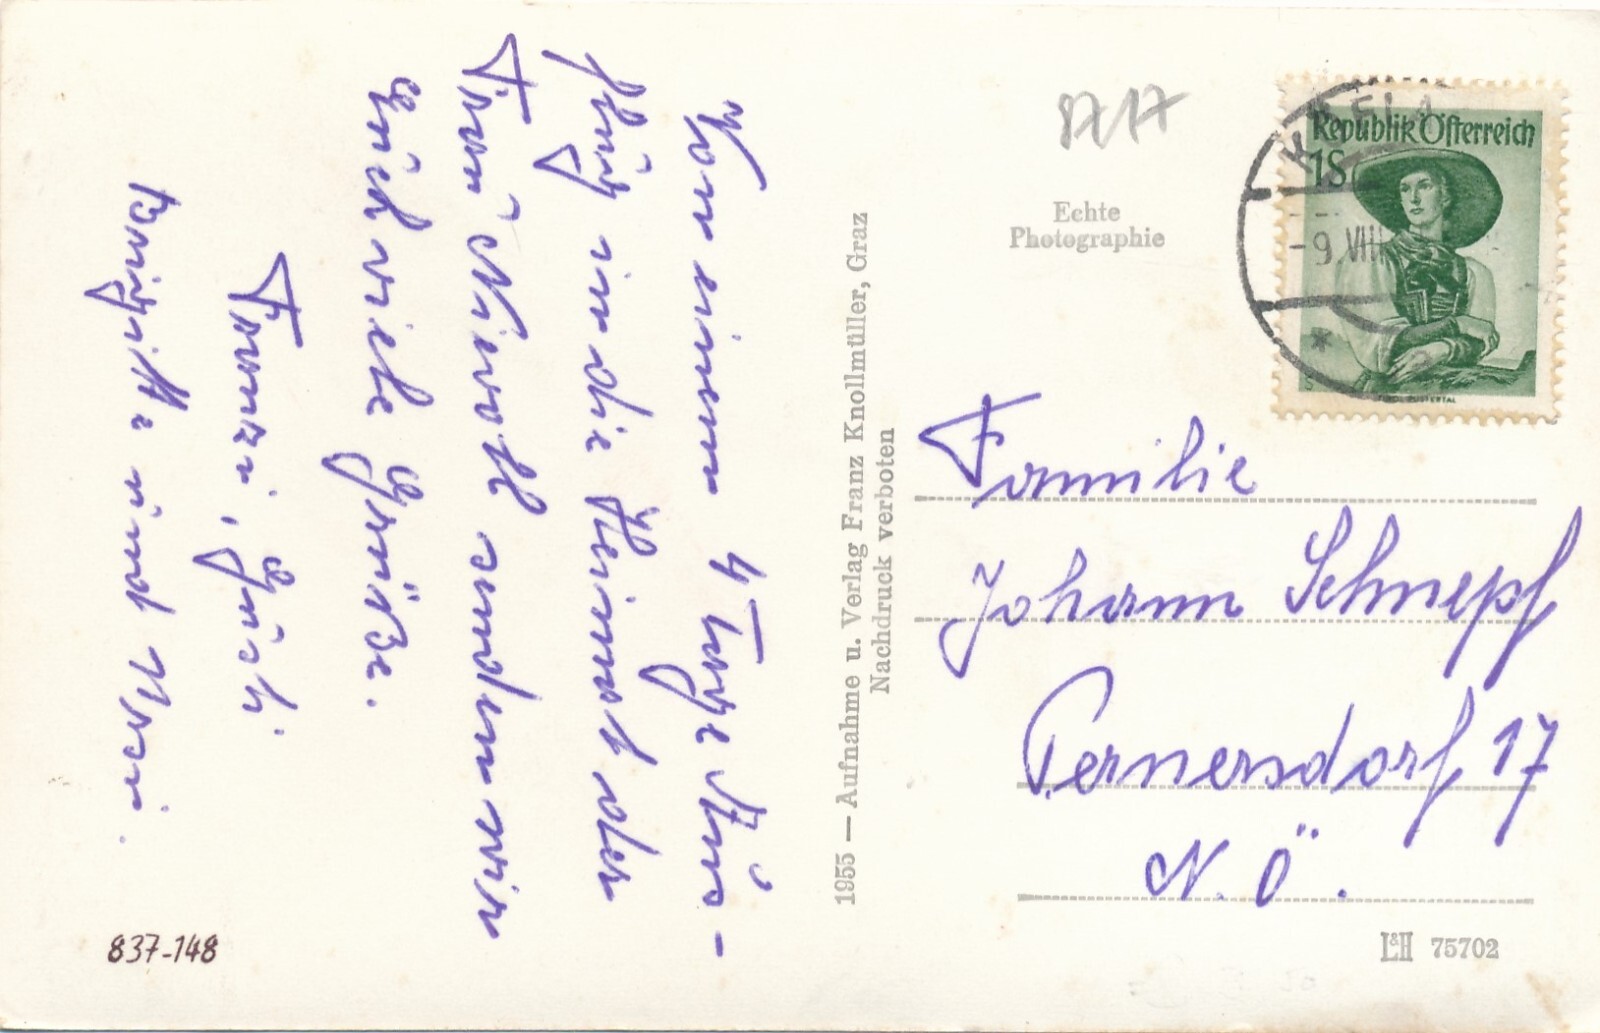 Von einem 4 Tage Aus-
flug in die Heimat der
Frau Niwoll senden wir
Euch viele Grüße.
Franzi, Gusti
Brigitte und Mari.
837-148
1955 — Aufnahme u. Verlag Franz Knollmüller, Graz
Nachdruck verboten
8717
Echte
Photographie
Republik Österreich
1S
-9.VIII
Familie
Johann Schnepf
Pernersdorf 17
N.Ö.
L&H 75702